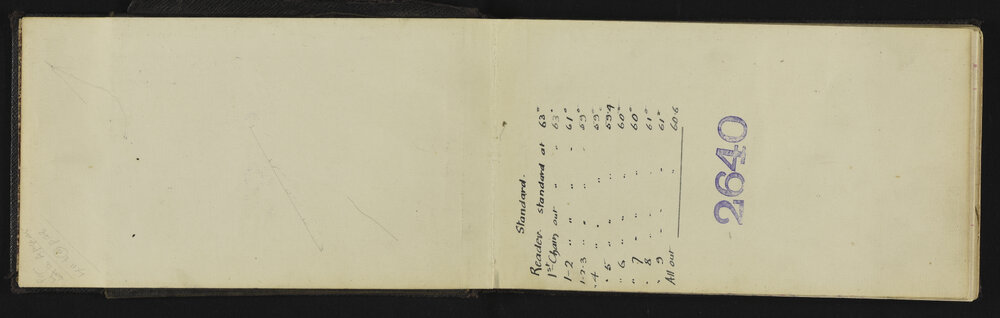 Standard.
Reader. Standard at 63°
1st Chain out " " 63°
1-2 " " " 61°
1-2-3 " " " 59°
" 4 " " " 59°
" 5 " " " 59.9
" 6 " " " 60°
" 7 " " " 60°
" 8 " " " 61°
" 9 " " " 61°
All out " 60.6
2640